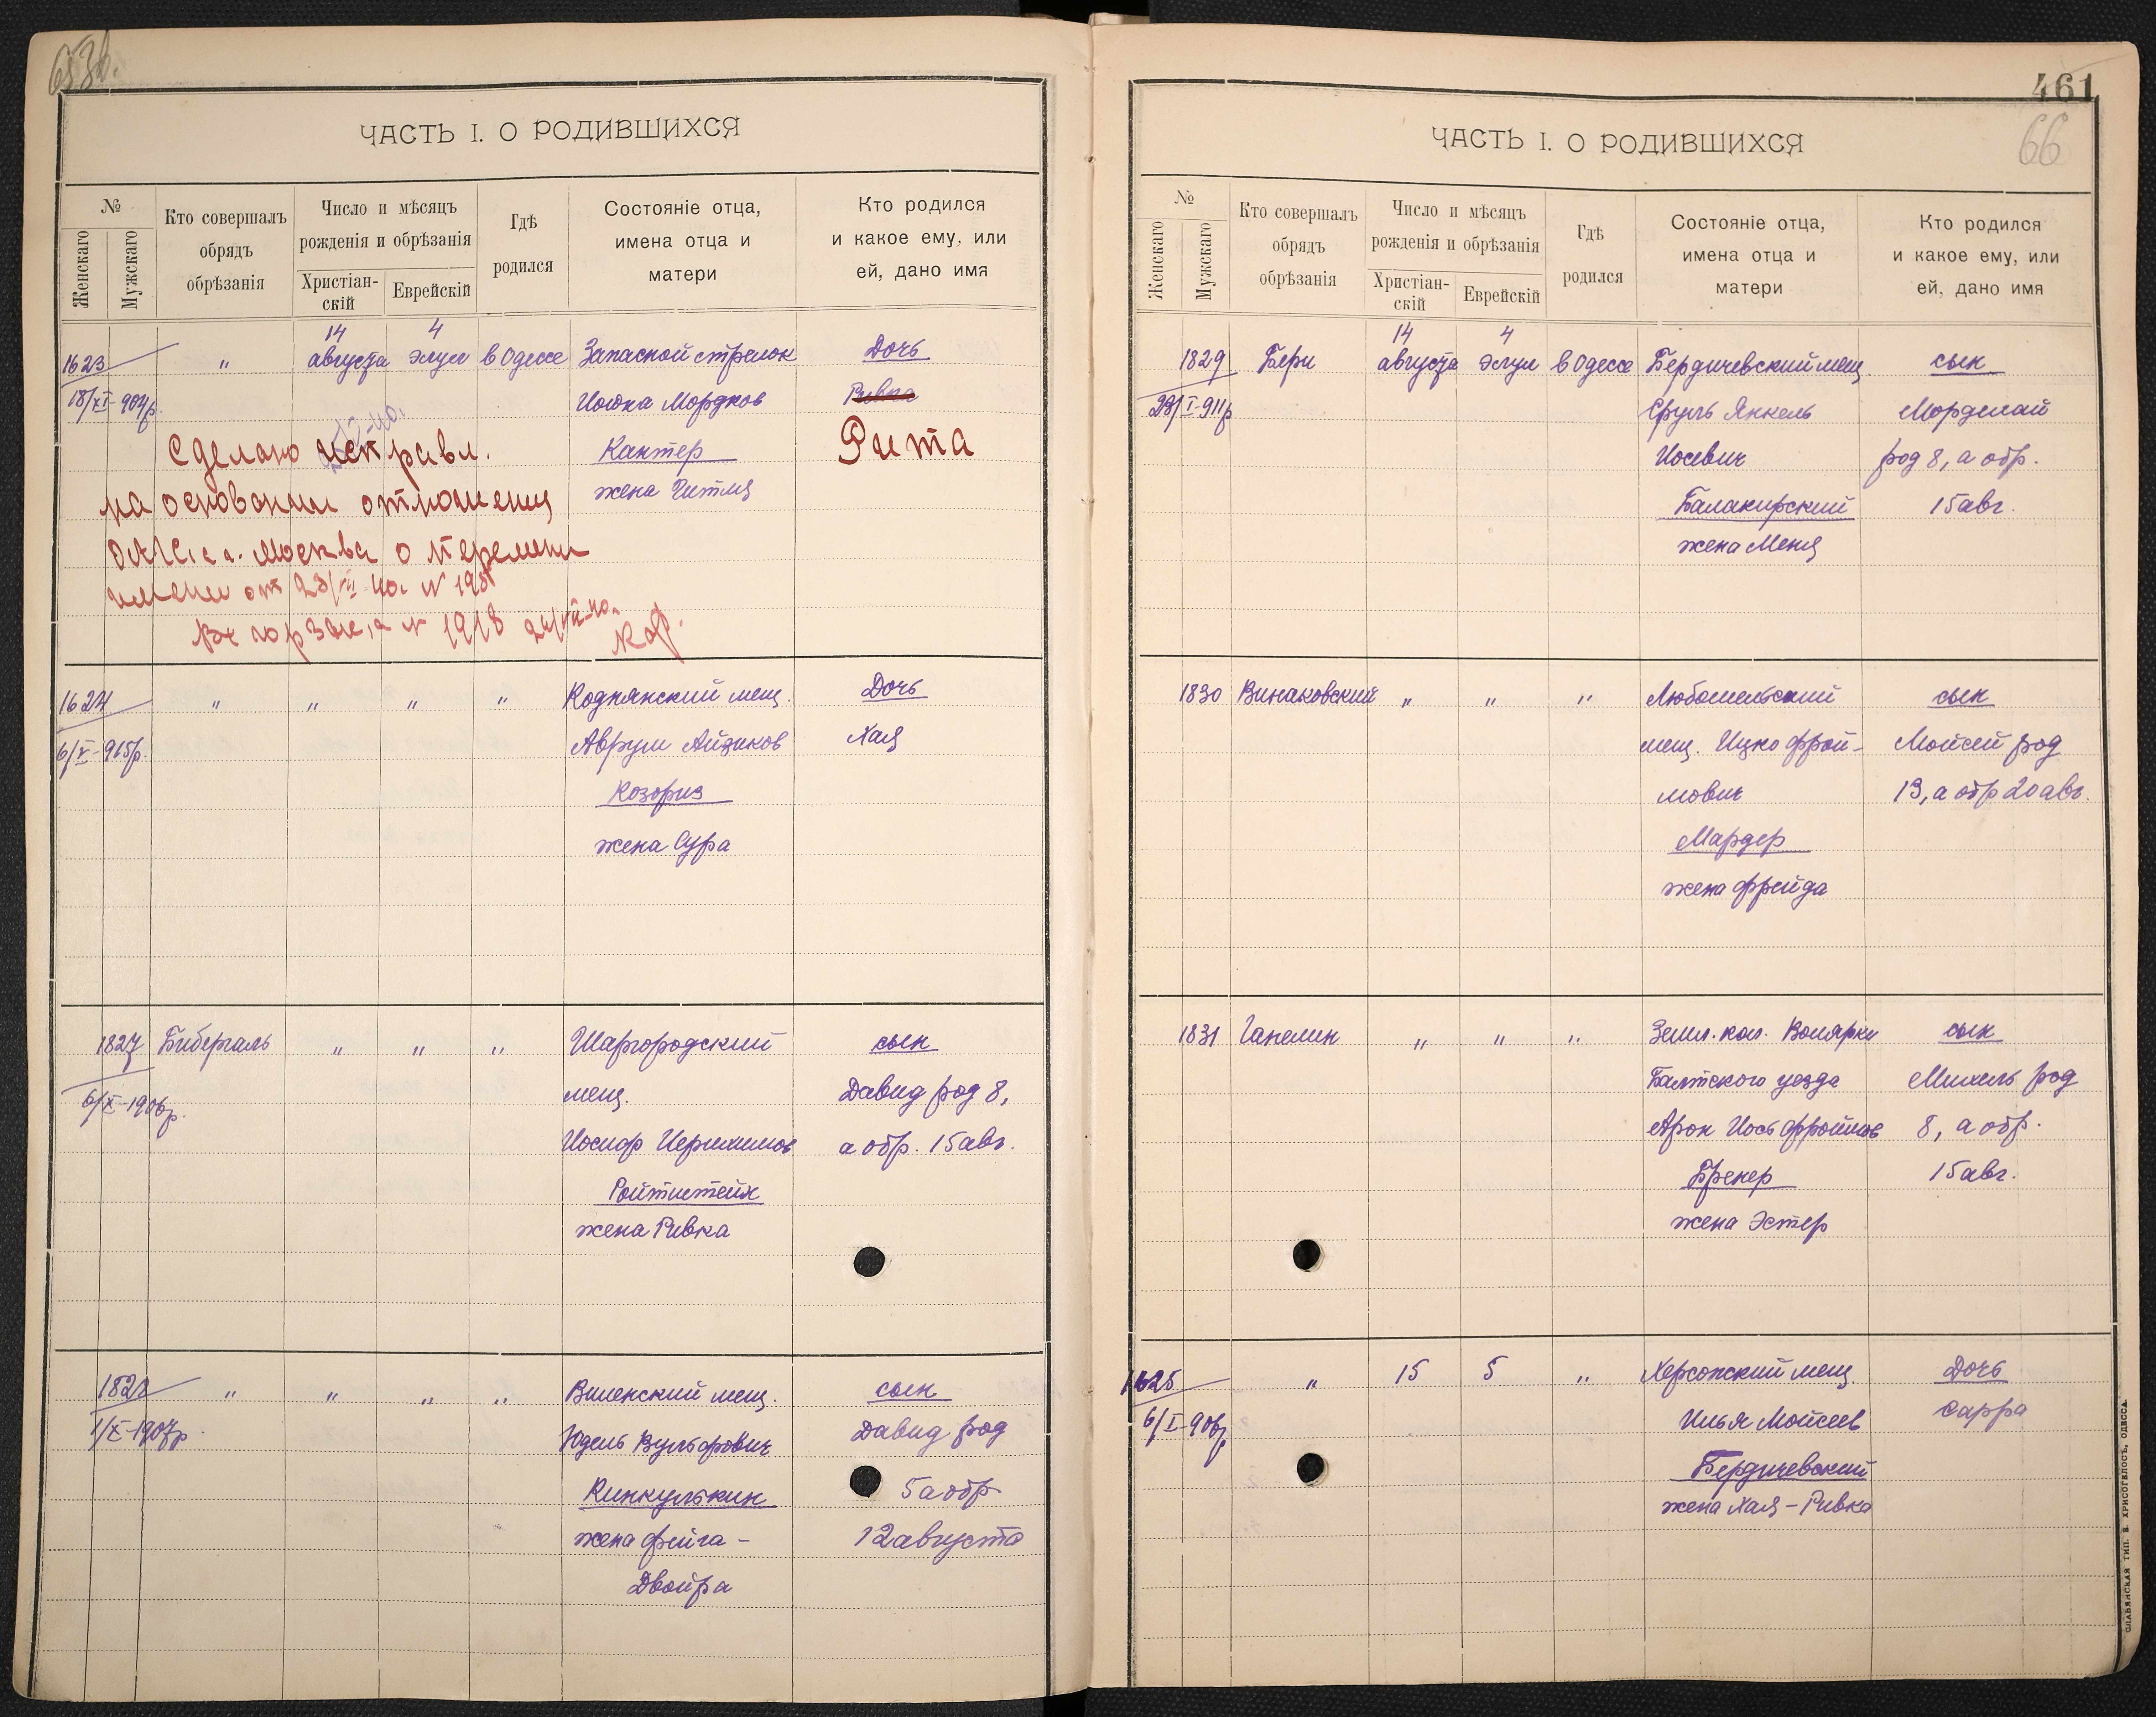 653б.
ЧАСТЬ I. О РОДИВШИХСЯ
№
Женскаго
Мужскаго
Кто совершалъ
обрядъ
обрѣзанія
Число и мѣсяцъ
рожденія и обрѣзанія
Христіан-
скій
Еврейскій
Гдѣ
родился
Состояніе отца,
имена отца и
матери
Кто родился
и какое ему, или
ей, дано имя
14 4
1623 " августа элул в Одессе Запасной стрелок Дочь
18/XI-904р. Иошка Мордков
Кантер Рита
жена Гитля
Сделано исправл.
на основании отношения
Москва о перемени
имени от 23/VII 40г. №
№ 1918
1624 " " " " Роднянский мещ. Дочь
6/V-915р. Аврум Айзиков Хая
Козориз
жена Сура
1827 Бибергаль " " " Шаргородский сын
6/X-1906р. мещ. Давид род 8,
Иосиф а обр. 15 авг.
Ройтштейн
жена Ривка
1828 " " " " Виленский мещ. сын
1/X-1907р. Юдель Вульфович Давид род
Кинкулькин 5 а обр
жена Фейга - 12 августа
Двойра
461
66
ЧАСТЬ I. О РОДИВШИХСЯ
№
Женскаго
Мужскаго
Кто совершалъ
обрядъ
обрѣзанія
Число и мѣсяцъ
рожденія и обрѣзанія
Христіан-
скій
Еврейскій
Гдѣ
родился
Состояніе отца,
имена отца и
матери
Кто родился
и какое ему, или
ей, дано имя
14 4
1829 Бери августа элул в Одессе Бердичевский мещ. сын
23/I-911р Сруль Янкель Мордехай
Иосевич род 8, а обр.
Балакирский 15 авг.
жена Меня
1830 Винаковский " " " Любомльский сын
мещ. Ицко Фрой- Мойсей род
мович 13, а обр 20 авг.
Мардер
жена Фрейда
1831 Ганелин " " " Земл. кол. Волярки сын
Балтского уезда Михель род
Арон Иось Фроимов 8, а обр.
Брекер 15 авг.
жена Эстер
1625 " 15 5 " Херсонский мещ. Дочь
6/I-906р. Илья Мойсеев Сарра
Бердичевский
жена Хая - Ривка
СЛАВЯНСКАЯ ТИП. Н. ХРИСОГЕЛОСЪ, ОДЕССА.